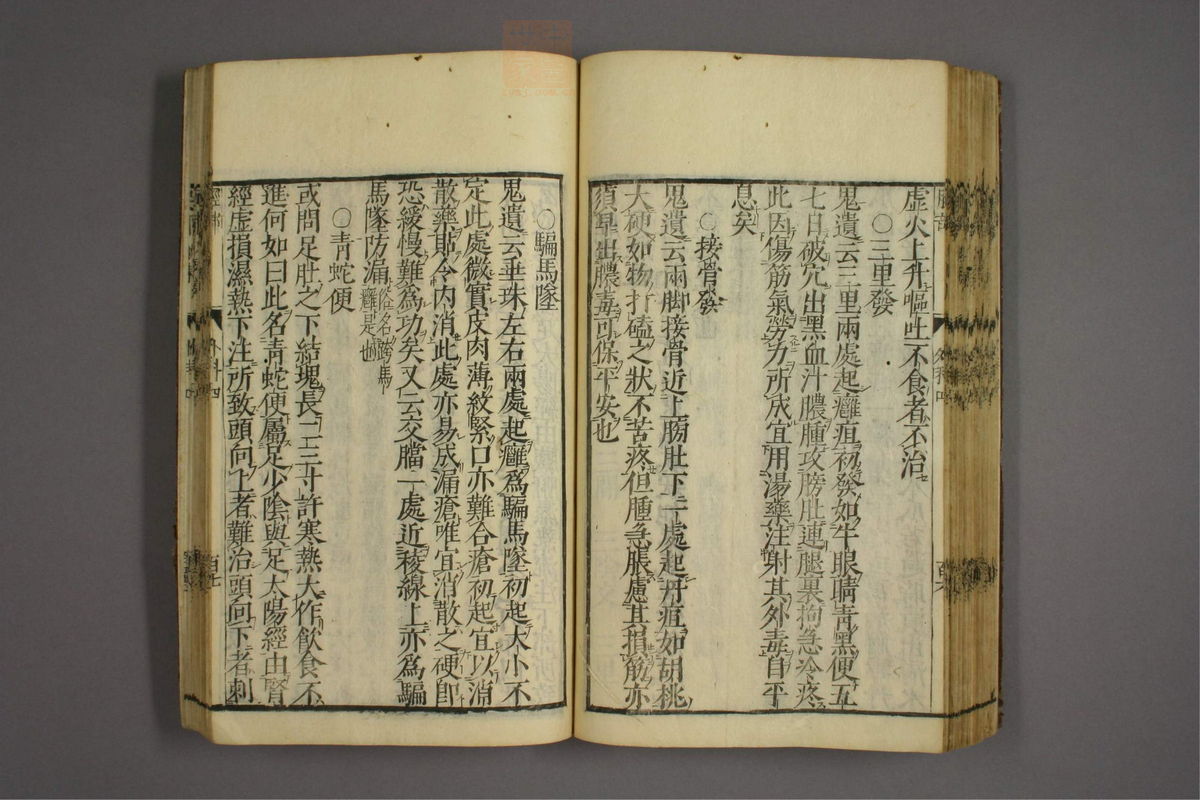 虛火上升嘔吐不食者不治
○三里發
鬼遺云三里兩處起癰疽初發如牛眼睛青黑便五
七日破穴出黑血汁膿腫攻膀肚連腿裏拘急冷疼
此因傷筋氣勞力所成宜用湯藥注射其外毒自平
息矣
○接骨發
鬼遺云兩脚接骨近上膓肚下一處起丹疽如胡桃
大硬如物打磕之狀不苦疼但腫急脹慮其損筋亦
須早出膿毒可保平安也
○騙馬墜
鬼遺云垂珠左右兩處起癰爲騙馬墜初起大小不
定此處微實皮肉薄紋緊口亦難合瘡初起宜以消
散藥貼令内消此處亦易成漏瘡唯宜消散之硬卽
恐緩慢難爲功矣又云交膪一處近稜線上亦爲騙
馬墜防漏俗名跨馬癰是也
○青蛇便
或問足肚之下結塊長二三寸許寒熱大作飲食不
進何如曰此名青蛇便屬足少陰與足太陽經由腎
經虛損濕熱下注所致頭向上者難治頭向下者刺
外科四
百七